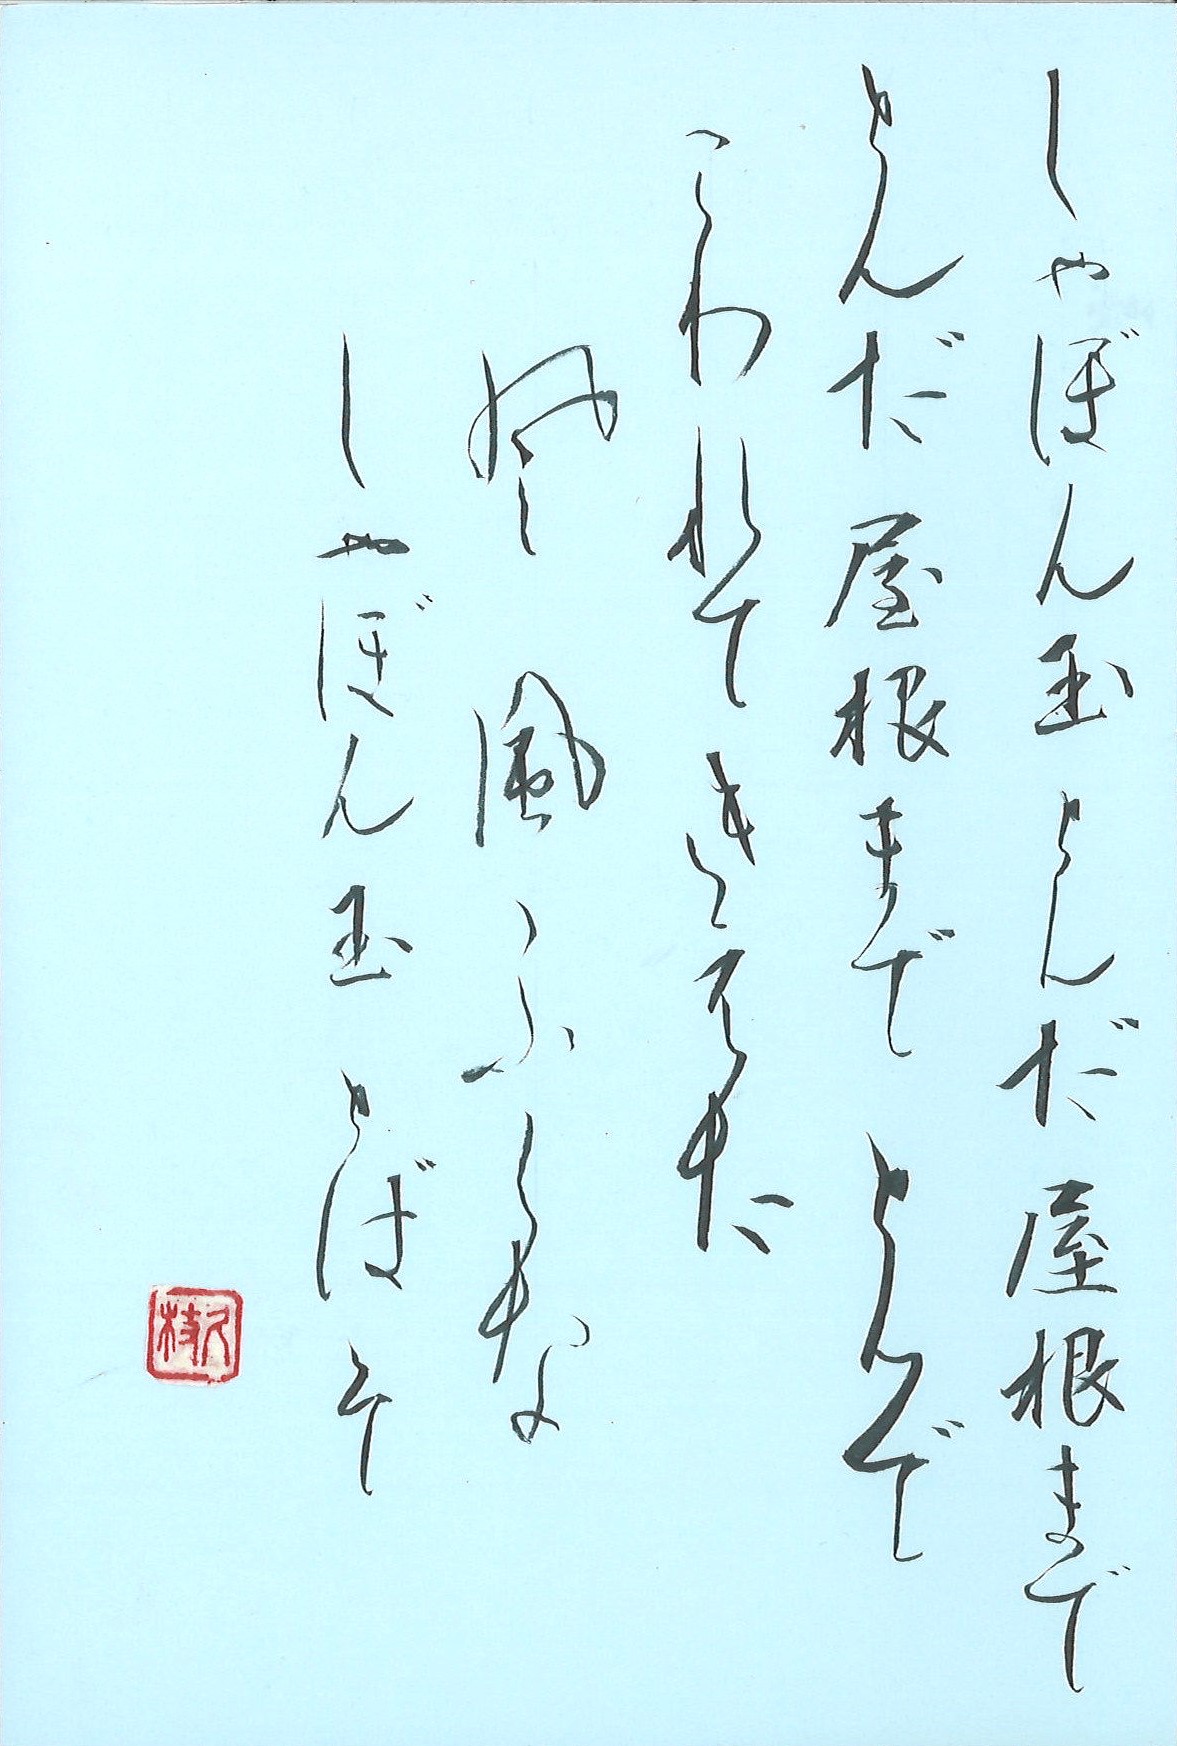 しゃぼん玉とんだ屋根まで
とんだ屋根まで とんで
こわれてきえた
風 風ふくな
しゃぼん玉とばそ
久枝